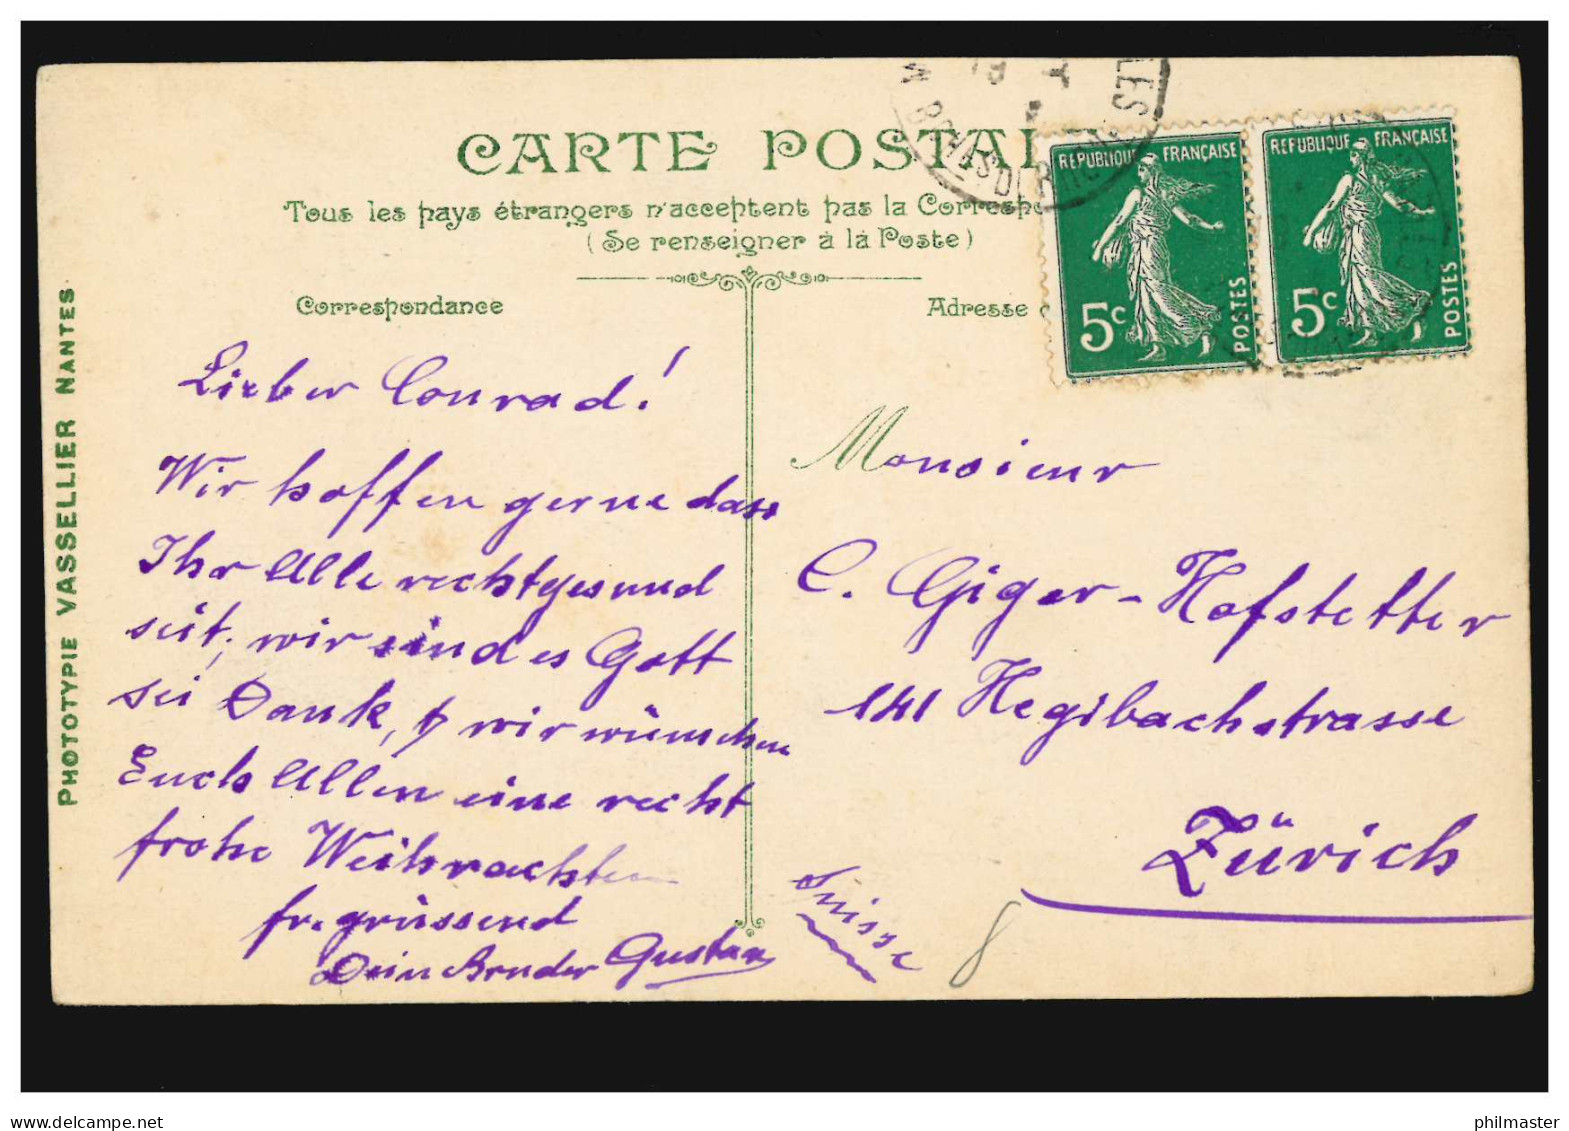 CARTE POSTALE
Tous les pays étrangers n'acceptent pas la Corresp
(Se renseigner à la Poste)
Correspondance
Adresse
PHOTOTYPIE VASSELLIER NANTES
RÉPUBLIQUE FRANÇAISE
5c
POSTES
RÉPUBLIQUE FRANÇAISE
5c
POSTES
Lieber Conrad!
Wir hoffen gerne dass
Ihr Alle recht gesund
seit, wir sind es Gott
sei Dank, & wir wünschen
Euch Allen eine recht
frohe Weihnachten
fr. grüssend
Dein Bruder Gustav
Monsieur
C. Giger-Hofstetter
141 Hegibachstrasse
Zürich
Suisse
8
delcampe.net
philmaster